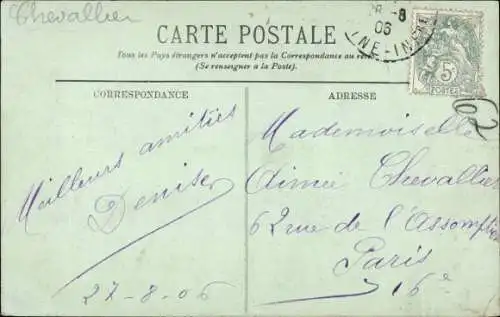 Chevallier
CARTE POSTALE
Tous les Pays étrangers n'acceptent pas la Correspondance au
(Se renseigner à la Poste).
CORRESPONDANCE
Meilleurs amitiés
Denise
27-8-06
ADRESSE
Mademoiselle
Aimée Chevallier
62 rue de l'Assomption
Paris
16e
-8
06
NE-INFRE
5c
POSTES
62